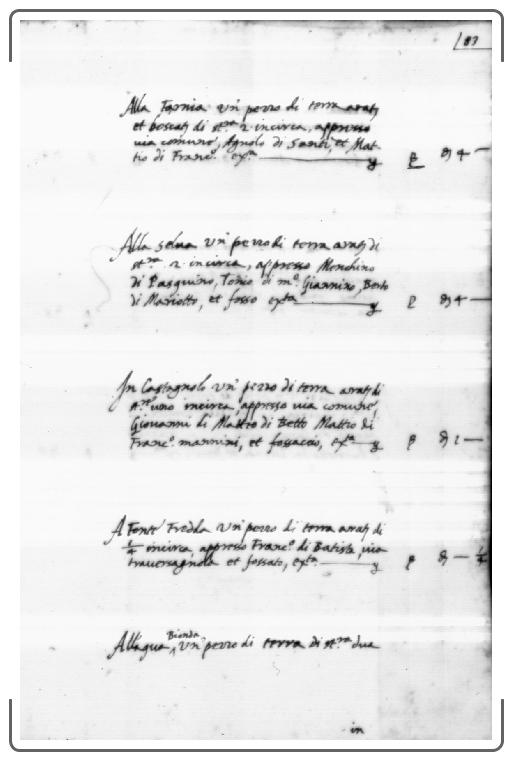 83
Alla Fornia un' pezzo di terra arat.
et boscat. di st.ra 2 incirca, appresso
via comune, Agnolo di Santi, et Mat-
tio di Franc.o ex.a
Alla selva un' pezzo di terra arat. di
st.ra 2 incirca, appresso Menchino
di Pasquino, Tonio di m.o Giannino, Berto
di Mariotto, et fosso ex.a
In Castagnolo un' pezzo di terra arat. di
st.ro uno incirca, appresso via comune,
Giovanni di Matteo di Betto Matteo di
Franc.o mannini, et fossaccio, ex.a
A Fonte Fredda un' pezzo di terra arat. di
1/4 incirca, appresso Franc.o di Batista, via
traversagnola et fossato, ex.a
All'aqua Bionda, un' pezzo di terra di st.ra dua
in